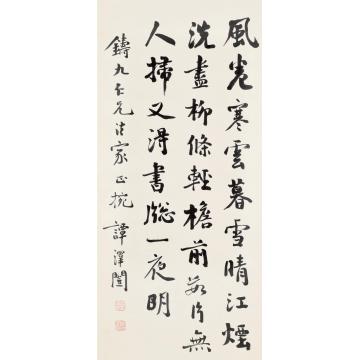 風卷寒雲暮雪晴江煙
洗盡柳條輕檐前數片無
人掃又得書牕一夜明
鑄九仁兄法家正捥 譚澤闓